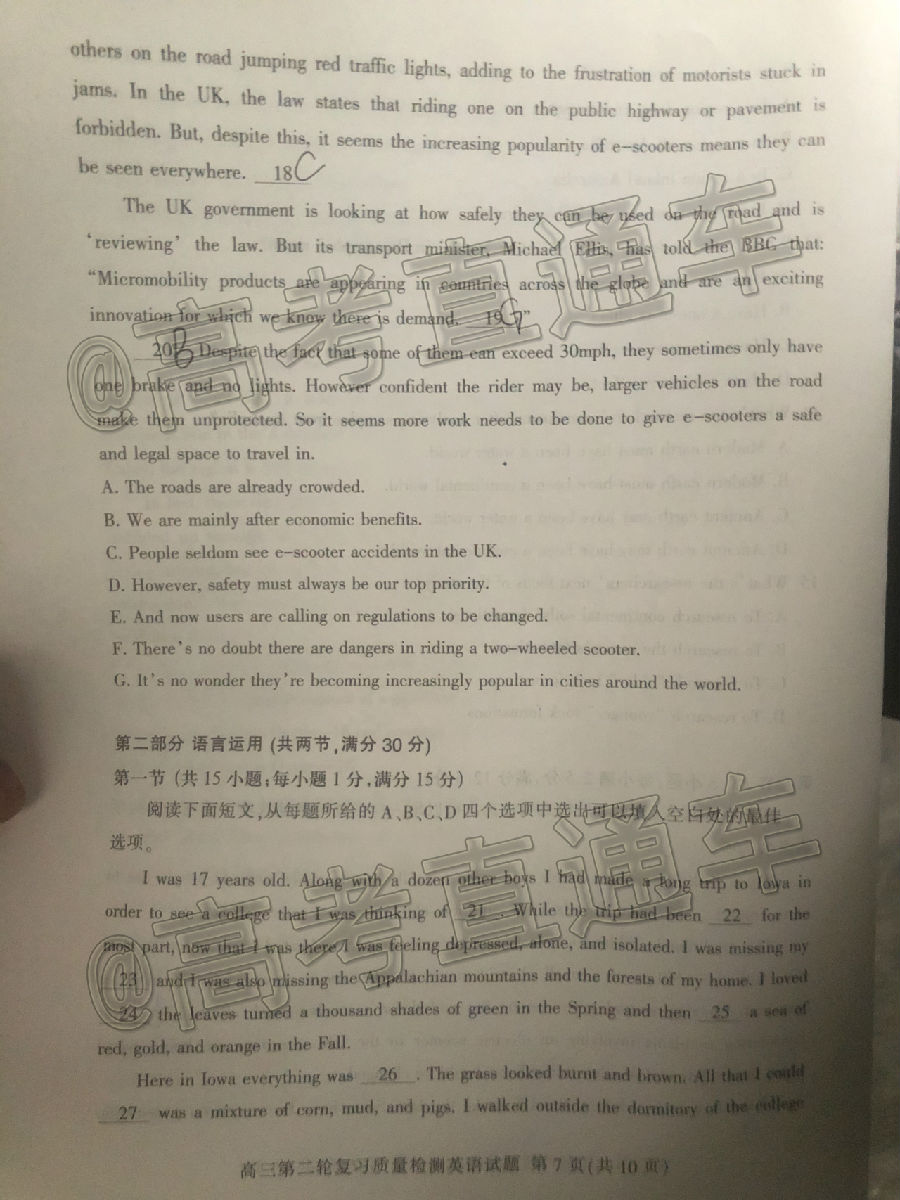 others on the road jumping red traffic lights, adding to the frustration of motorists stuck in
jams. In the UK, the law states that riding one on the public highway or pavement is
forbidden. But, despite this, it seems the increasing popularity of e-scooters means they can
be seen everywhere. 18 C
The UK government is looking at how safely they can be used on the road and is
'reviewing' the law. But its transport minister, Michael Ellis, has told the BBC that:
"Micromobility products are appearing in countries across the globe and are an exciting
innovation for which we know there is demand. 19 G"
20 B Despite the fact that some of them can exceed 30mph, they sometimes only have
one brake and no lights. However confident the rider may be, larger vehicles on the road
make them unprotected. So it seems more work needs to be done to give e-scooters a safe
and legal space to travel in.
A. The roads are already crowded.
B. We are mainly after economic benefits.
C. People seldom see e-scooter accidents in the UK.
D. However, safety must always be our top priority.
E. And now users are calling on regulations to be changed.
F. There's no doubt there are dangers in riding a two-wheeled scooter.
G. It's no wonder they're becoming increasingly popular in cities around the world.
第二部分 语言运用 (共两节,满分 30 分)
第一节 (共 15 小题;每小题 1 分,满分 15 分)
阅读下面短文,从每题所给的 A、B、C、D 四个选项中选出可以填入空白处的最佳
选项。
I was 17 years old. Along with a dozen other boys I had made a long trip to Iowa in
order to see a college that I was thinking of 21 . While the trip had been 22 for the
most part, now that I was there I was feeling depressed, alone, and isolated. I was missing my
23 and I was also missing the Appalachian mountains and the forests of my home. I loved
24 the leaves turned a thousand shades of green in the Spring and then 25 a sea of
red, gold, and orange in the Fall.
Here in Iowa everything was 26 . The grass looked burnt and brown. All that I could
27 was a mixture of corn, mud, and pigs. I walked outside the dormitory of the college
高三第二轮复习质量检测英语试题 第 7 页(共 10 页)
@高考直通车
@高考直通车